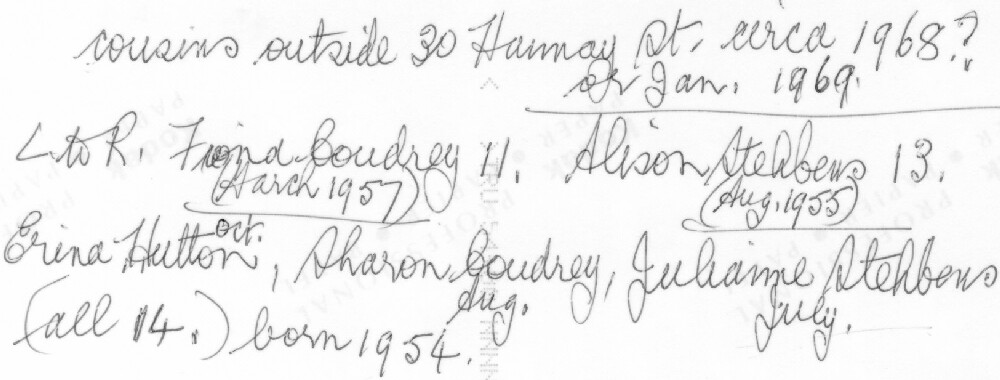 cousins outside 30 Hannay St. circa 1968?
or Jan. 1969.
L to R. Fiona Coudrey 11. Alison Stehbens 13.
(March 1957) (Aug. 1955)
Oct.
Erina Hutton, Sharon Coudrey, Julianne Stehbens
Aug. July.
(all 14.) born 1954.